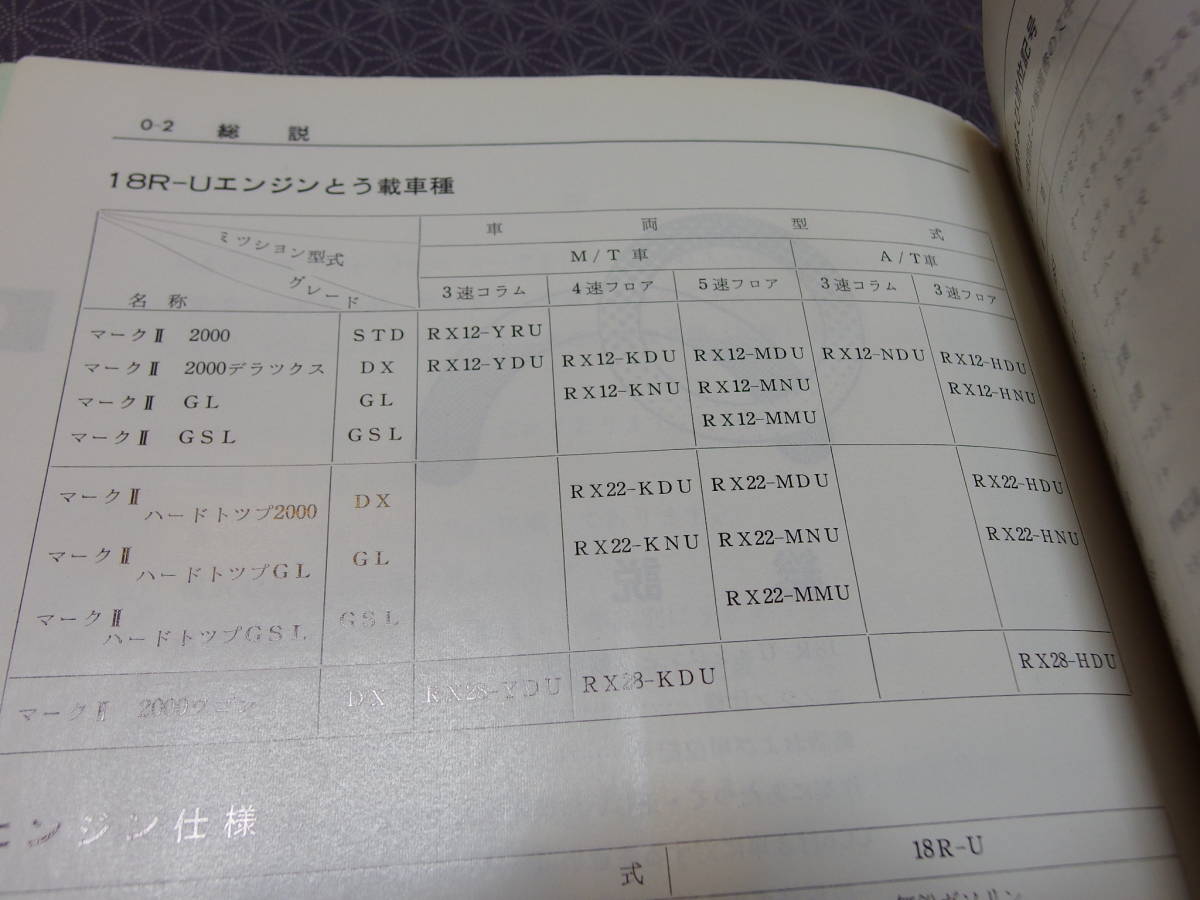 0-2 総説
18R-Uエンジンとう載車種
車両型式
ミツション型式
M/T車 A/T車
グレード
名称 3速コラム 4速フロア 5速フロア 3速コラム 3速フロア
マークⅡ 2000 STD RX12-YRU
マークⅡ 2000デラツクス DX RX12-YDU RX12-KDU RX12-MDU RX12-NDU RX12-HDU
マークⅡ GL GL RX12-KNU RX12-MNU RX12-HNU
マークⅡ GSL GSL RX12-MMU
マークⅡ
ハードトツプ2000 DX RX22-KDU RX22-MDU RX22-HDU
マークⅡ
ハードトツプGL GL RX22-KNU RX22-MNU RX22-HNU
マークⅡ
ハードトツプGSL GSL RX22-MMU
マークⅡ 2000ワゴン DX RX28-YDU RX28-KDU RX28-HDU
エンジン仕様
式 18R-U